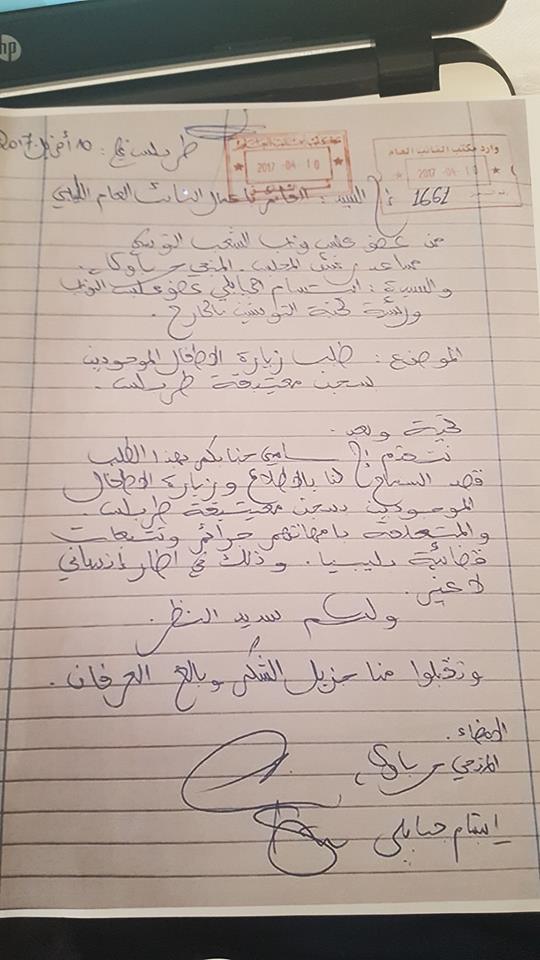 hp
طرابلس في: 10 أفريل 2017
وارد مكتب النائب العام
2017 -04- 10
2017 -04- 10
1991
إلى السيد: القائم بأعمال النائب العام الليبي
من عضو مجلس نواب الشعب التونسي
مساعد رئيس المجلس. المنجي حرباوي.
والسيدة: ابتسام الجبابلي عضو مجلس النواب
ورئيسة لجنة التونسيين بالخارج.
الموضوع: طلب زيارة الأطفال الموجودين
بسجن معيتيقة طرابلس.
تحية وبعد.
نتقدم إلى سامي جنابكم بهذا الطلب
قصد السماح لنا بالاطلاع وزيارة الأطفال
الموجودين بسجن معيتيقة طرابلس.
والمتعلقة بامهاتهم جرائم وتتبعات
قضائية بليبيا. وذلك في إطار إنساني
لا غير.
ولكم سديد النظر.
وتقبلوا منا جزيل الشكر وبالغ العرفان.
الإمضاء.
المنجي حرباوي
ابتسام جبابلي